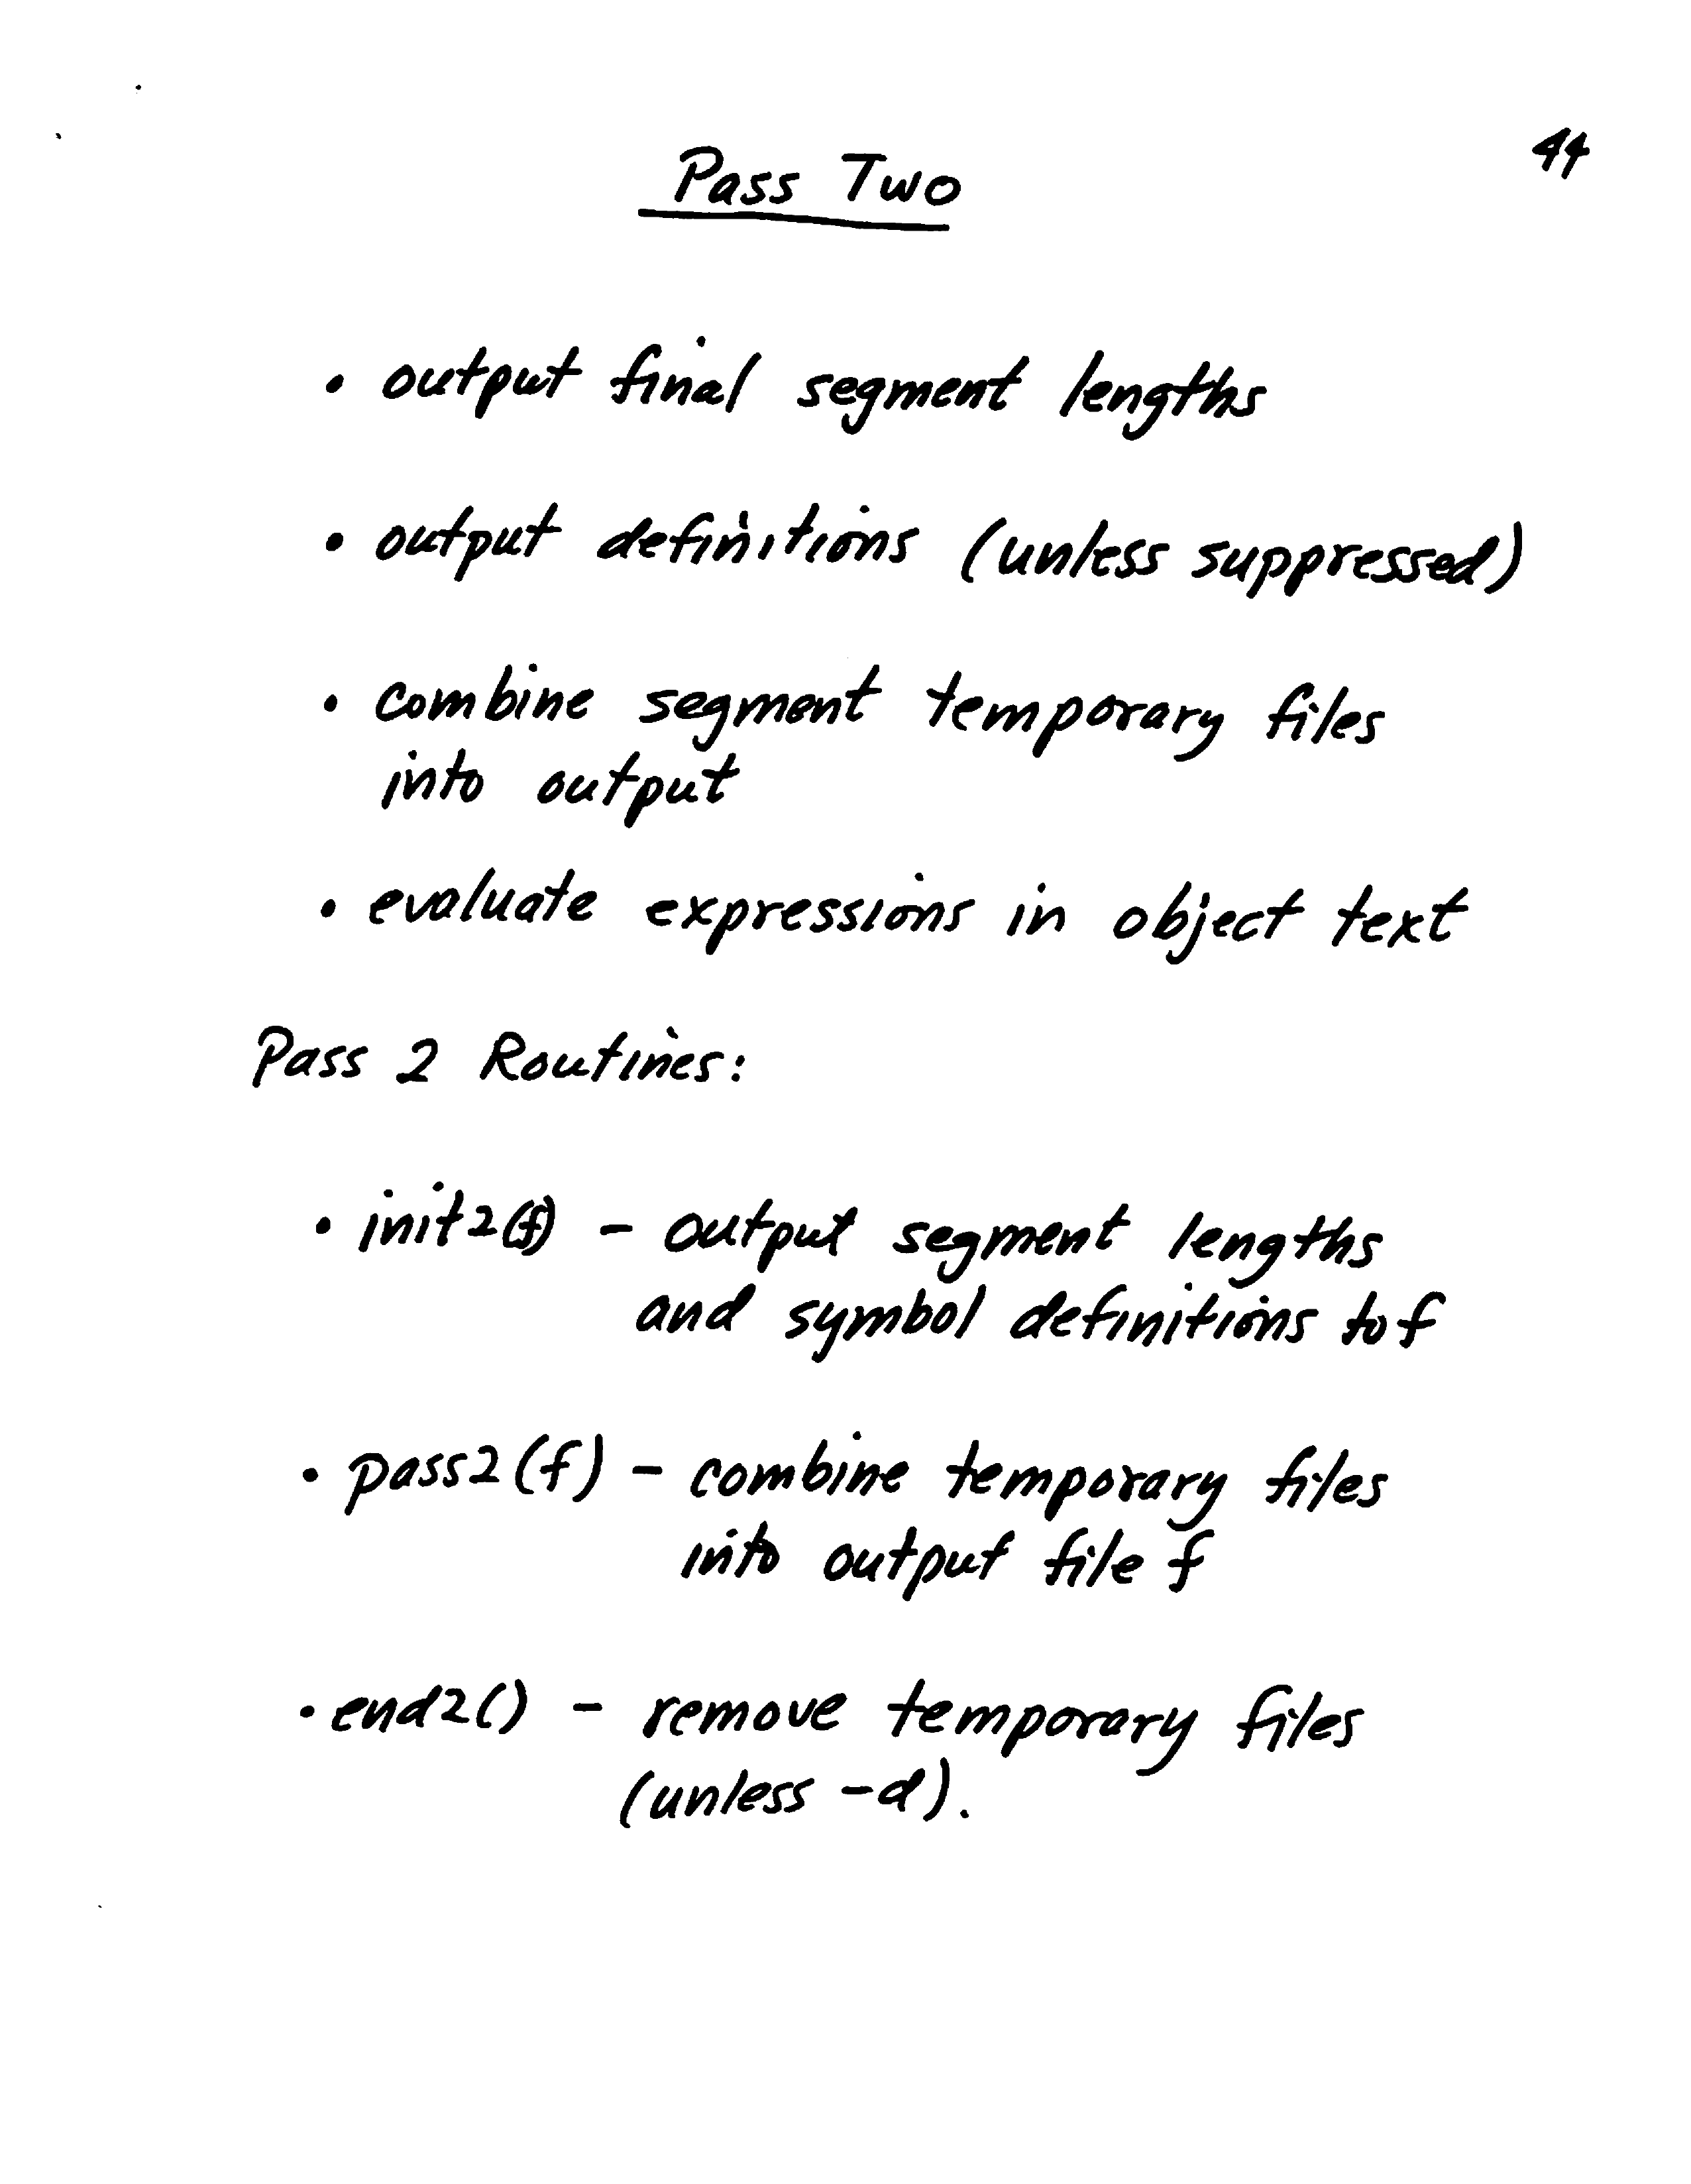 44
Pass Two
• output final segment lengths
• output definitions (unless suppressed)
• combine segment temporary files
into output
• evaluate expressions in object text
Pass 2 Routines:
• init2(f) - output segment lengths
and symbol definitions to f
• pass2(f) - combine temporary files
into output file f
• end2() - remove temporary files
(unless -d).